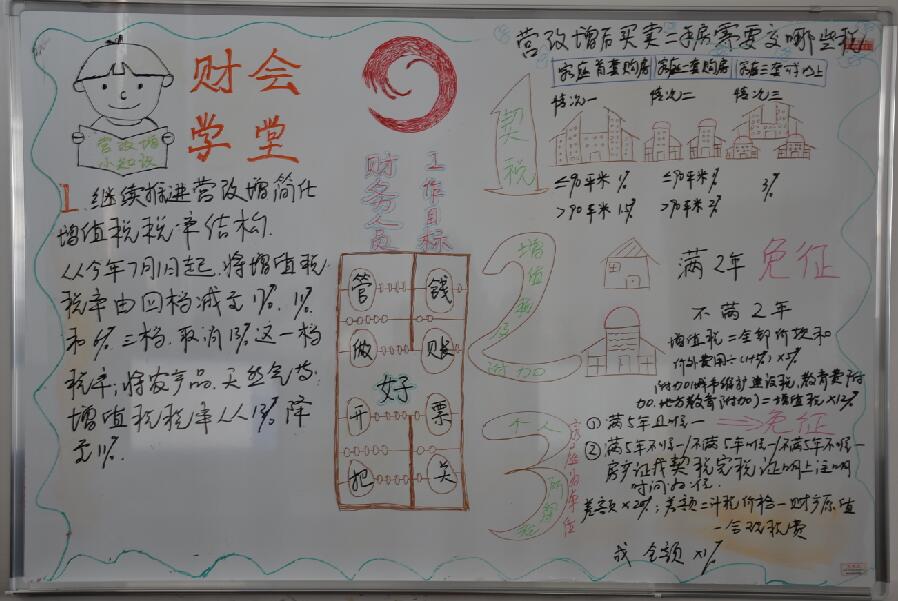 财会
学堂
营改增
小知识
1.继续推进营改增简化
增值税税率结构.
从今年7月1日起.将增值税
税率由四档减至17%.11%
和6%三档.取消13%这一档
税率;将农产品.天然气等
增值税税率从13%降
至11%.
财务人员
工作目标
管 钱
做 账
好
开 票
把 关
营改增后买卖二手房需要交哪些税
家庭首套购房 家庭二套购房 家庭三套
情况一 情况二 情况三
1 契税
≤90平米 1% ≤90平米 1% 3%
>90平米 1.5% >90平米 2%
2 增值税及附加
满2年 免征
不满2年
增值税=全部价款和
价外费用÷(1+5%)×5%
附加(城市维护建设税,教育费附
加.地方教育附加)=增值税×12%
3 个人所得税
①满5年且唯一 免征
②满5年不唯一/不满5年唯一/不满5年不唯一
房产证或契税完税证明上注明
时间为准.
差额×20%;差额=计税价格-财产原值
-合理税费
或 全额×1%